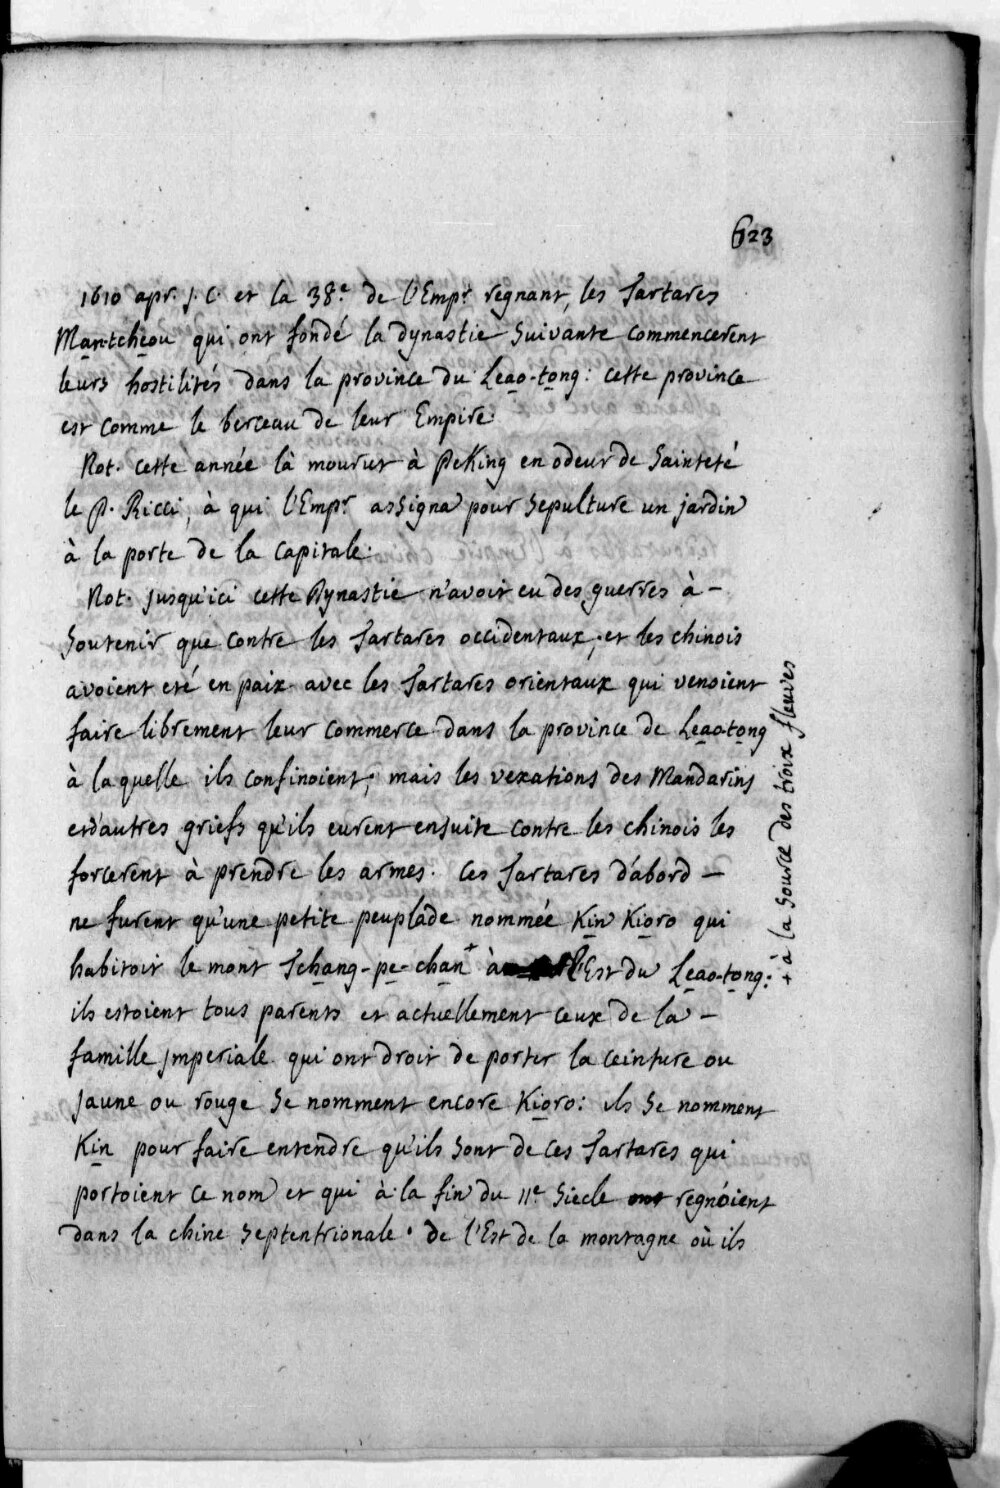 623
1610 apr. J. C. et la 38.e de l'Emp.r regnant, les Tartares
Mantcheou qui ont fondé la dynastie suivante commencerent
leurs hostilités dans la province du Leao-tong: cette province
est comme le berceau de leur Empire.
Not. cette année là mourut à PeKing en odeur de Sainteté
le P. Ricci, à qui l'Emp.r assigna pour sepulture un jardin
à la porte de la Capitale.
Not. jusqu'ici cette Dynastie n'avoit eu des guerres à -
soutenir que contre les Tartares occidentaux; et les chinois
avoient eté en paix avec les Tartares orientaux qui venoient
faire librement leur commerce dans la province de Leao-tong
à laquelle ils confinoient; mais les vexations des Mandarins
et d'autres griefs qu'ils eurent ensuite contre les chinois les
forcerent à prendre les armes. Ces Tartares d'abord —
ne furent qu'une petite peuplade nommée Kin Kioro qui
habitoit le mont Tchang-pe-chan + à l'Est du Leao-tong:
ils estoient tous parents et actuellement ceux de la -
famille jmperiale qui ont droit de porter la ceinture ou
jaune ou rouge se nomment encore Kioro: ils se nomment
Kin pour faire entendre qu'ils sont de ces Tartares qui
portoient ce nom et qui à la fin du 11.e Siecle regnoient
dans la chine septentrionale. de l'Est de la montagne où ils
+ à la source des troix fleuves